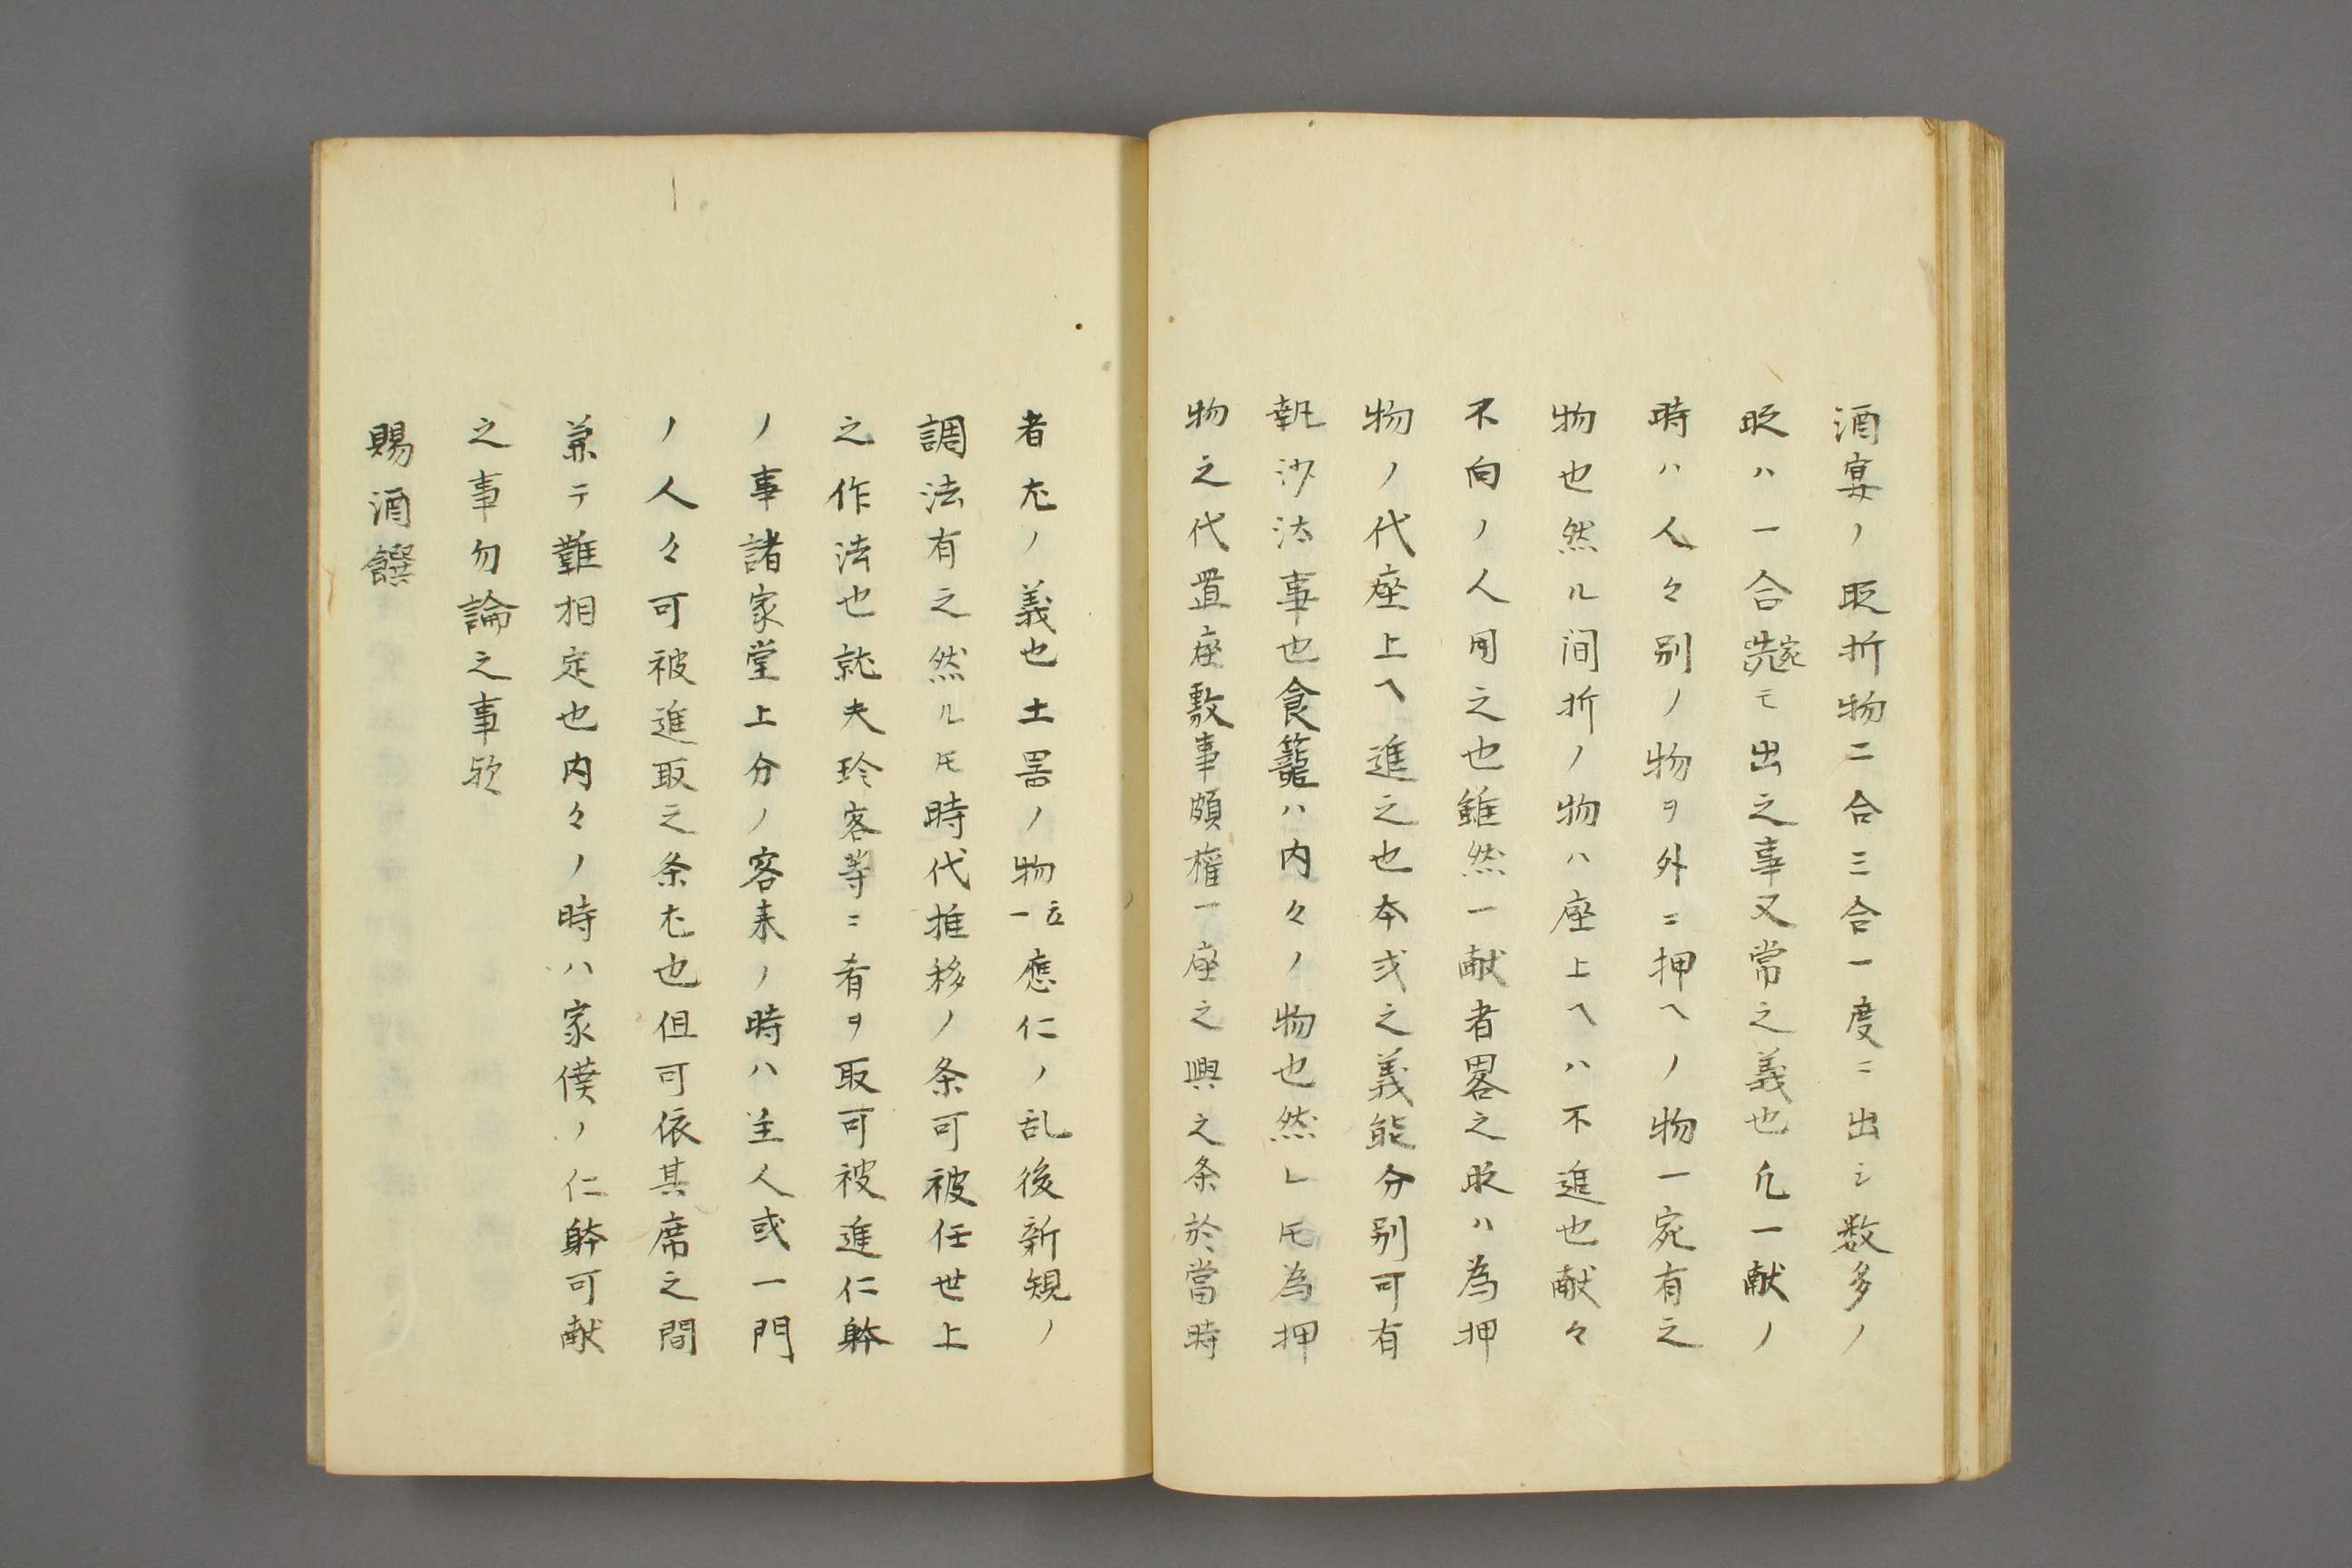 酒宴ノ砌折物二合三合一度ニ出シ数多ノ
砌ハ一合宛モ出之事又常之義也凡一献ノ
時ハ人々別ノ物ヲ外ニ押ヘノ物一宛有之
物也然ル间折ノ物ハ座上ヘハ不進也献々
不向ノ人用之也雖然一献者畧之砌ハ為押
物ノ代座上ヘ進之也本式之義能分别可有
執沙汰事也食籠ハ内々ノ物也然レ𪜈為押
物之代置座敷事頗権一座之興之条於當時
者尤ノ義也土噐ノ物一立應仁ノ乱後新規ノ
調法有之然ル𪜈時代推移ノ条可被任世上
之作法也就夫珍客等ニ肴ヲ取可被進仁躰
ノ事諸家堂上分ノ客来ノ時ハ主人或一門
ノ人々可被進取之条尤也但可依其席之間
兼テ難相定也内々ノ時ハ家僕ノ仁躰可献
之事勿論之事歟
賜酒饌